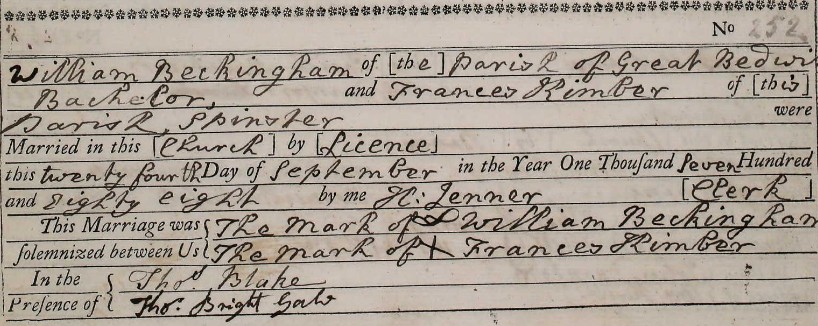 No 252
William Beckingham of [the] Parish of Great Bedwi
Bachelor, and Frances Kimber of [this]
Parish, Spinster were
Married in this [Church] by [Licence]
this twenty fourth Day of September in the Year One Thouſand Seven Hundred
and Eighty eight by me H: Jenner [Clerk]
This Marriage was { The Mark of William Beckingham
ſolemnized between Us { The Mark of X Frances Kimber
In the { Thos Blake
Preſence of { Thos. Bright